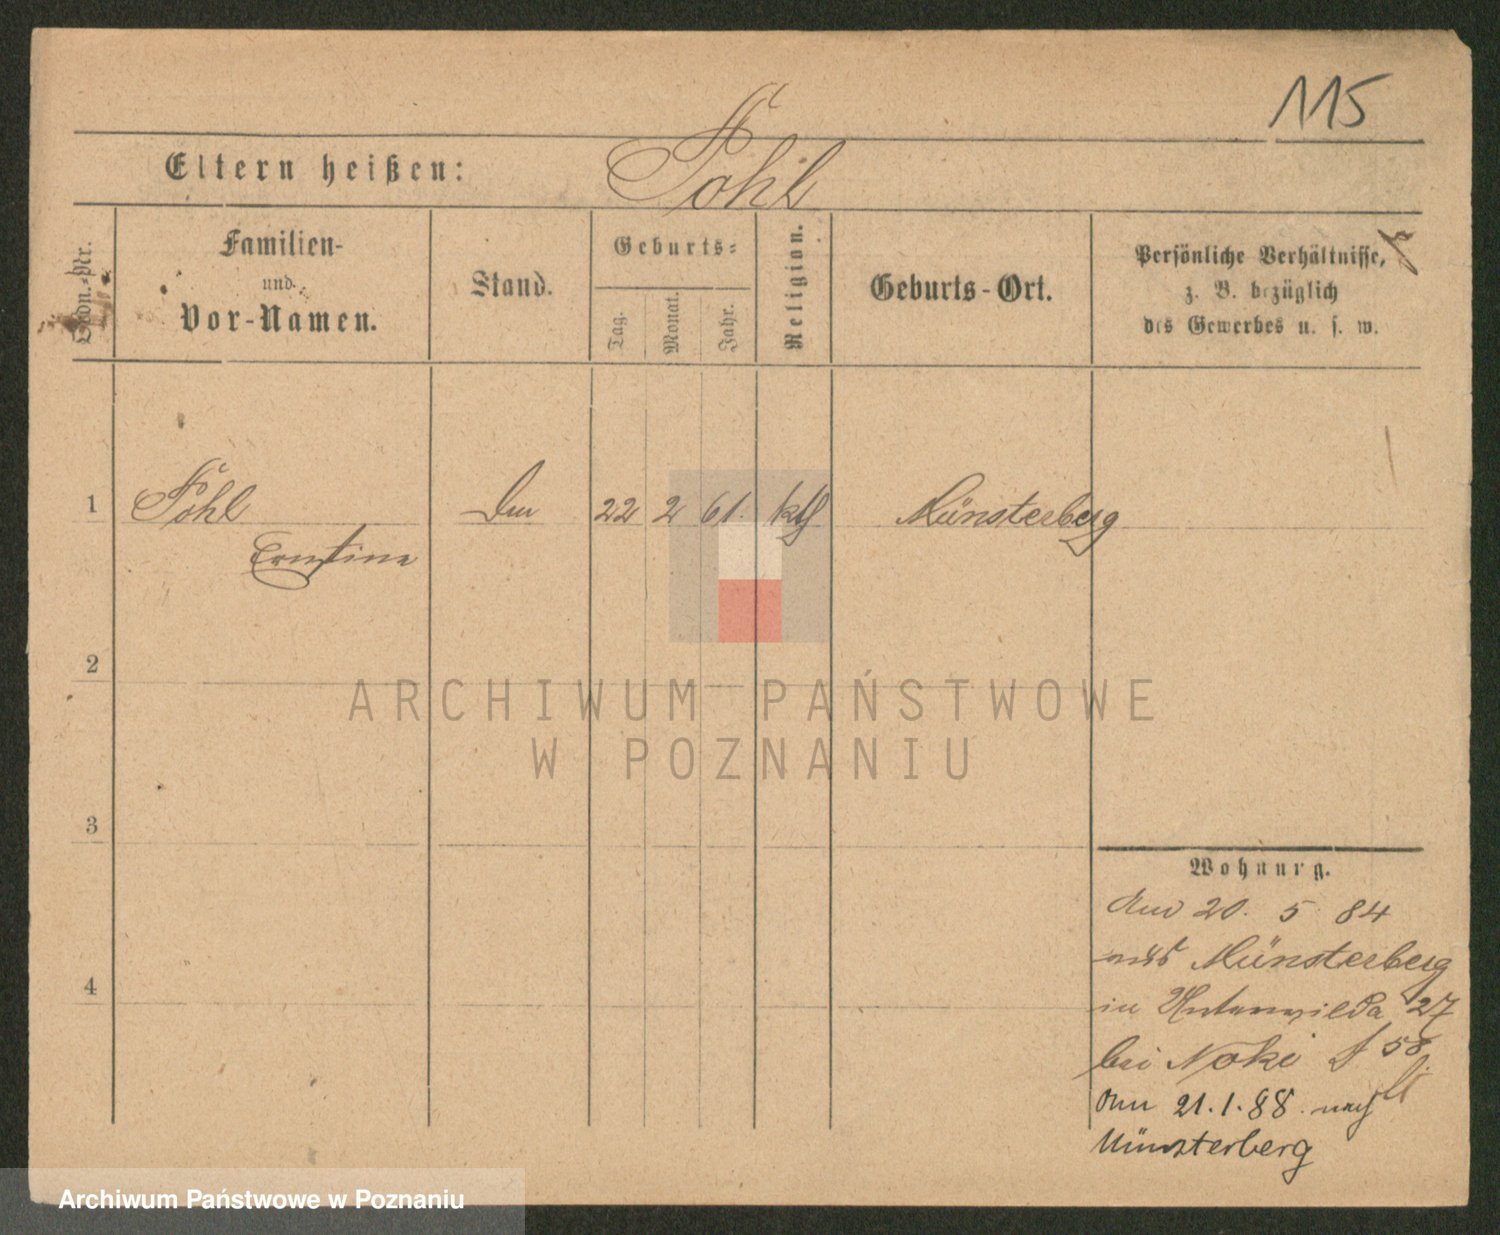 115
Eltern heißen: Pohl
Ordn.-Nr.
Familien-
und
Vor-Namen.
Stand.
Geburts-
Tag.
Monat.
Jahr.
Religion.
Geburts-Ort.
Persönliche Verhältnisse,
z. B. bezüglich
des Gewerbes u. s. w.
1 Pohl 22 2 61. kth Münsterberg
Ernstine
2
ARCHIWUM PAŃSTWOWE
W POZNANIU
3
Wohnung.
Am 20. 5 84
aus Münsterberg
4
in Unterwilda 27
bei Noki 58
Am 21.1.88. nach
Münsterberg
Archiwum Państwowe w Poznaniu